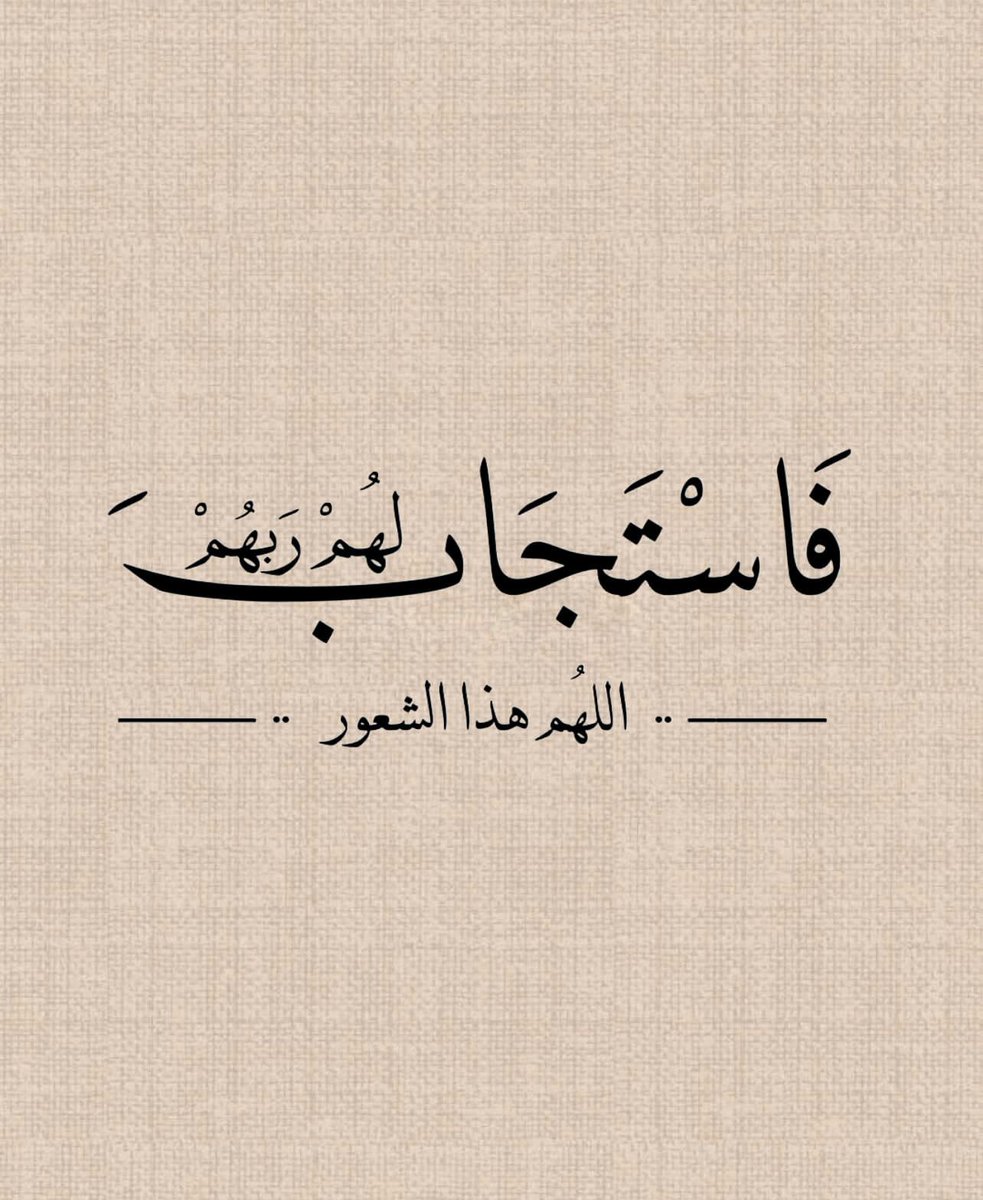 فَاسْتَجَابَ لهُمْ رَبهُمْ
.. اللهُم هذا الشعور ..